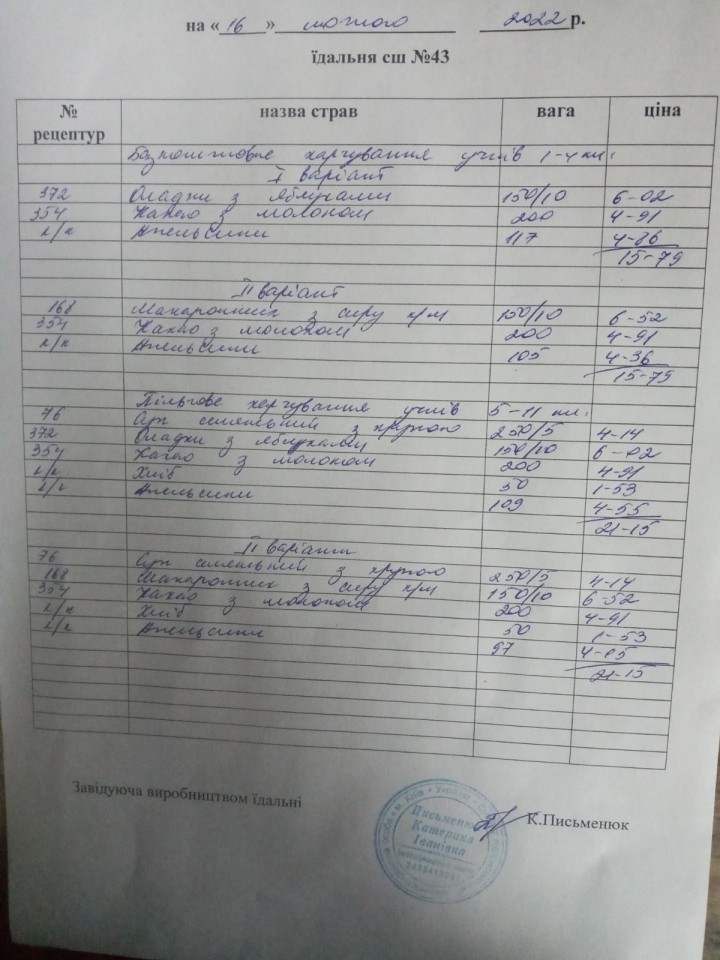 на « 16 » лютого 2022 р.
їдальня сш №43
№ рецептур назва страв вага ціна
Безкоштовне харчування учнів 1-4 кл.
I варіант
372 Оладки з яблуками 150/10 6-02
354 Какао з молоком 200 4-91
к/к Апельсини 117 4-86
15-79
II варіант
168 Макаронник з сиру к/м 150/10 6-52
354 Какао з молоком 200 4-91
к/к Апельсини 105 4-36
15-79
Пільгове харчування учнів 5-11 кл.
76 Суп селянський з крупою 250/5 4-14
372 Оладки з яблуками 150/10 6-02
354 Какао з молоком 200 4-91
к/к Хліб 50 1-53
к/к Апельсини 109 4-55
21-15
II варіант
76 Суп селянський з крупою 250/5 4-14
168 Макаронник з сиру к/м 150/10 6-52
354 Какао з молоком 200 4-91
к/к Хліб 50 1-53
к/к Апельсини 97 4-05
21-15
Завідуюча виробництвом їдальні К.Письменюк
Письменюк
Катерина
Іванівна